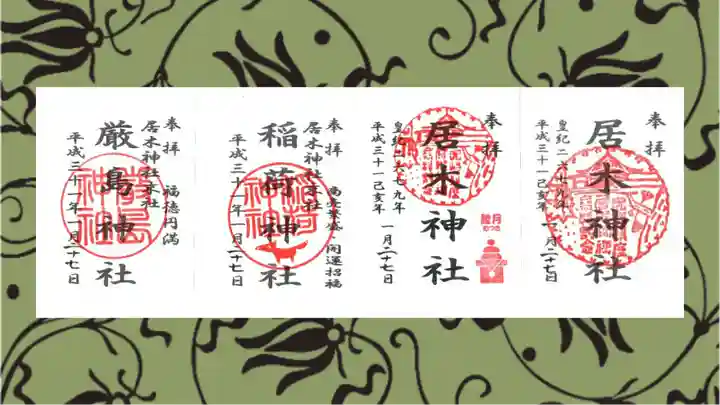 奉拝
居木神社
皇紀二六七九年
平成三十一己亥年 一月二十七日
奉拝
居木神社
皇紀二六七九年
平成三十一己亥年 一月二十七日
睦月
むつき
奉拝
居木神社末社 商売繁盛 開運招福
稲荷神社
平成三十一年 一月二十七日
奉拝 福徳円満
居木神社末社
厳島神社
平成三十一年 一月二十七日